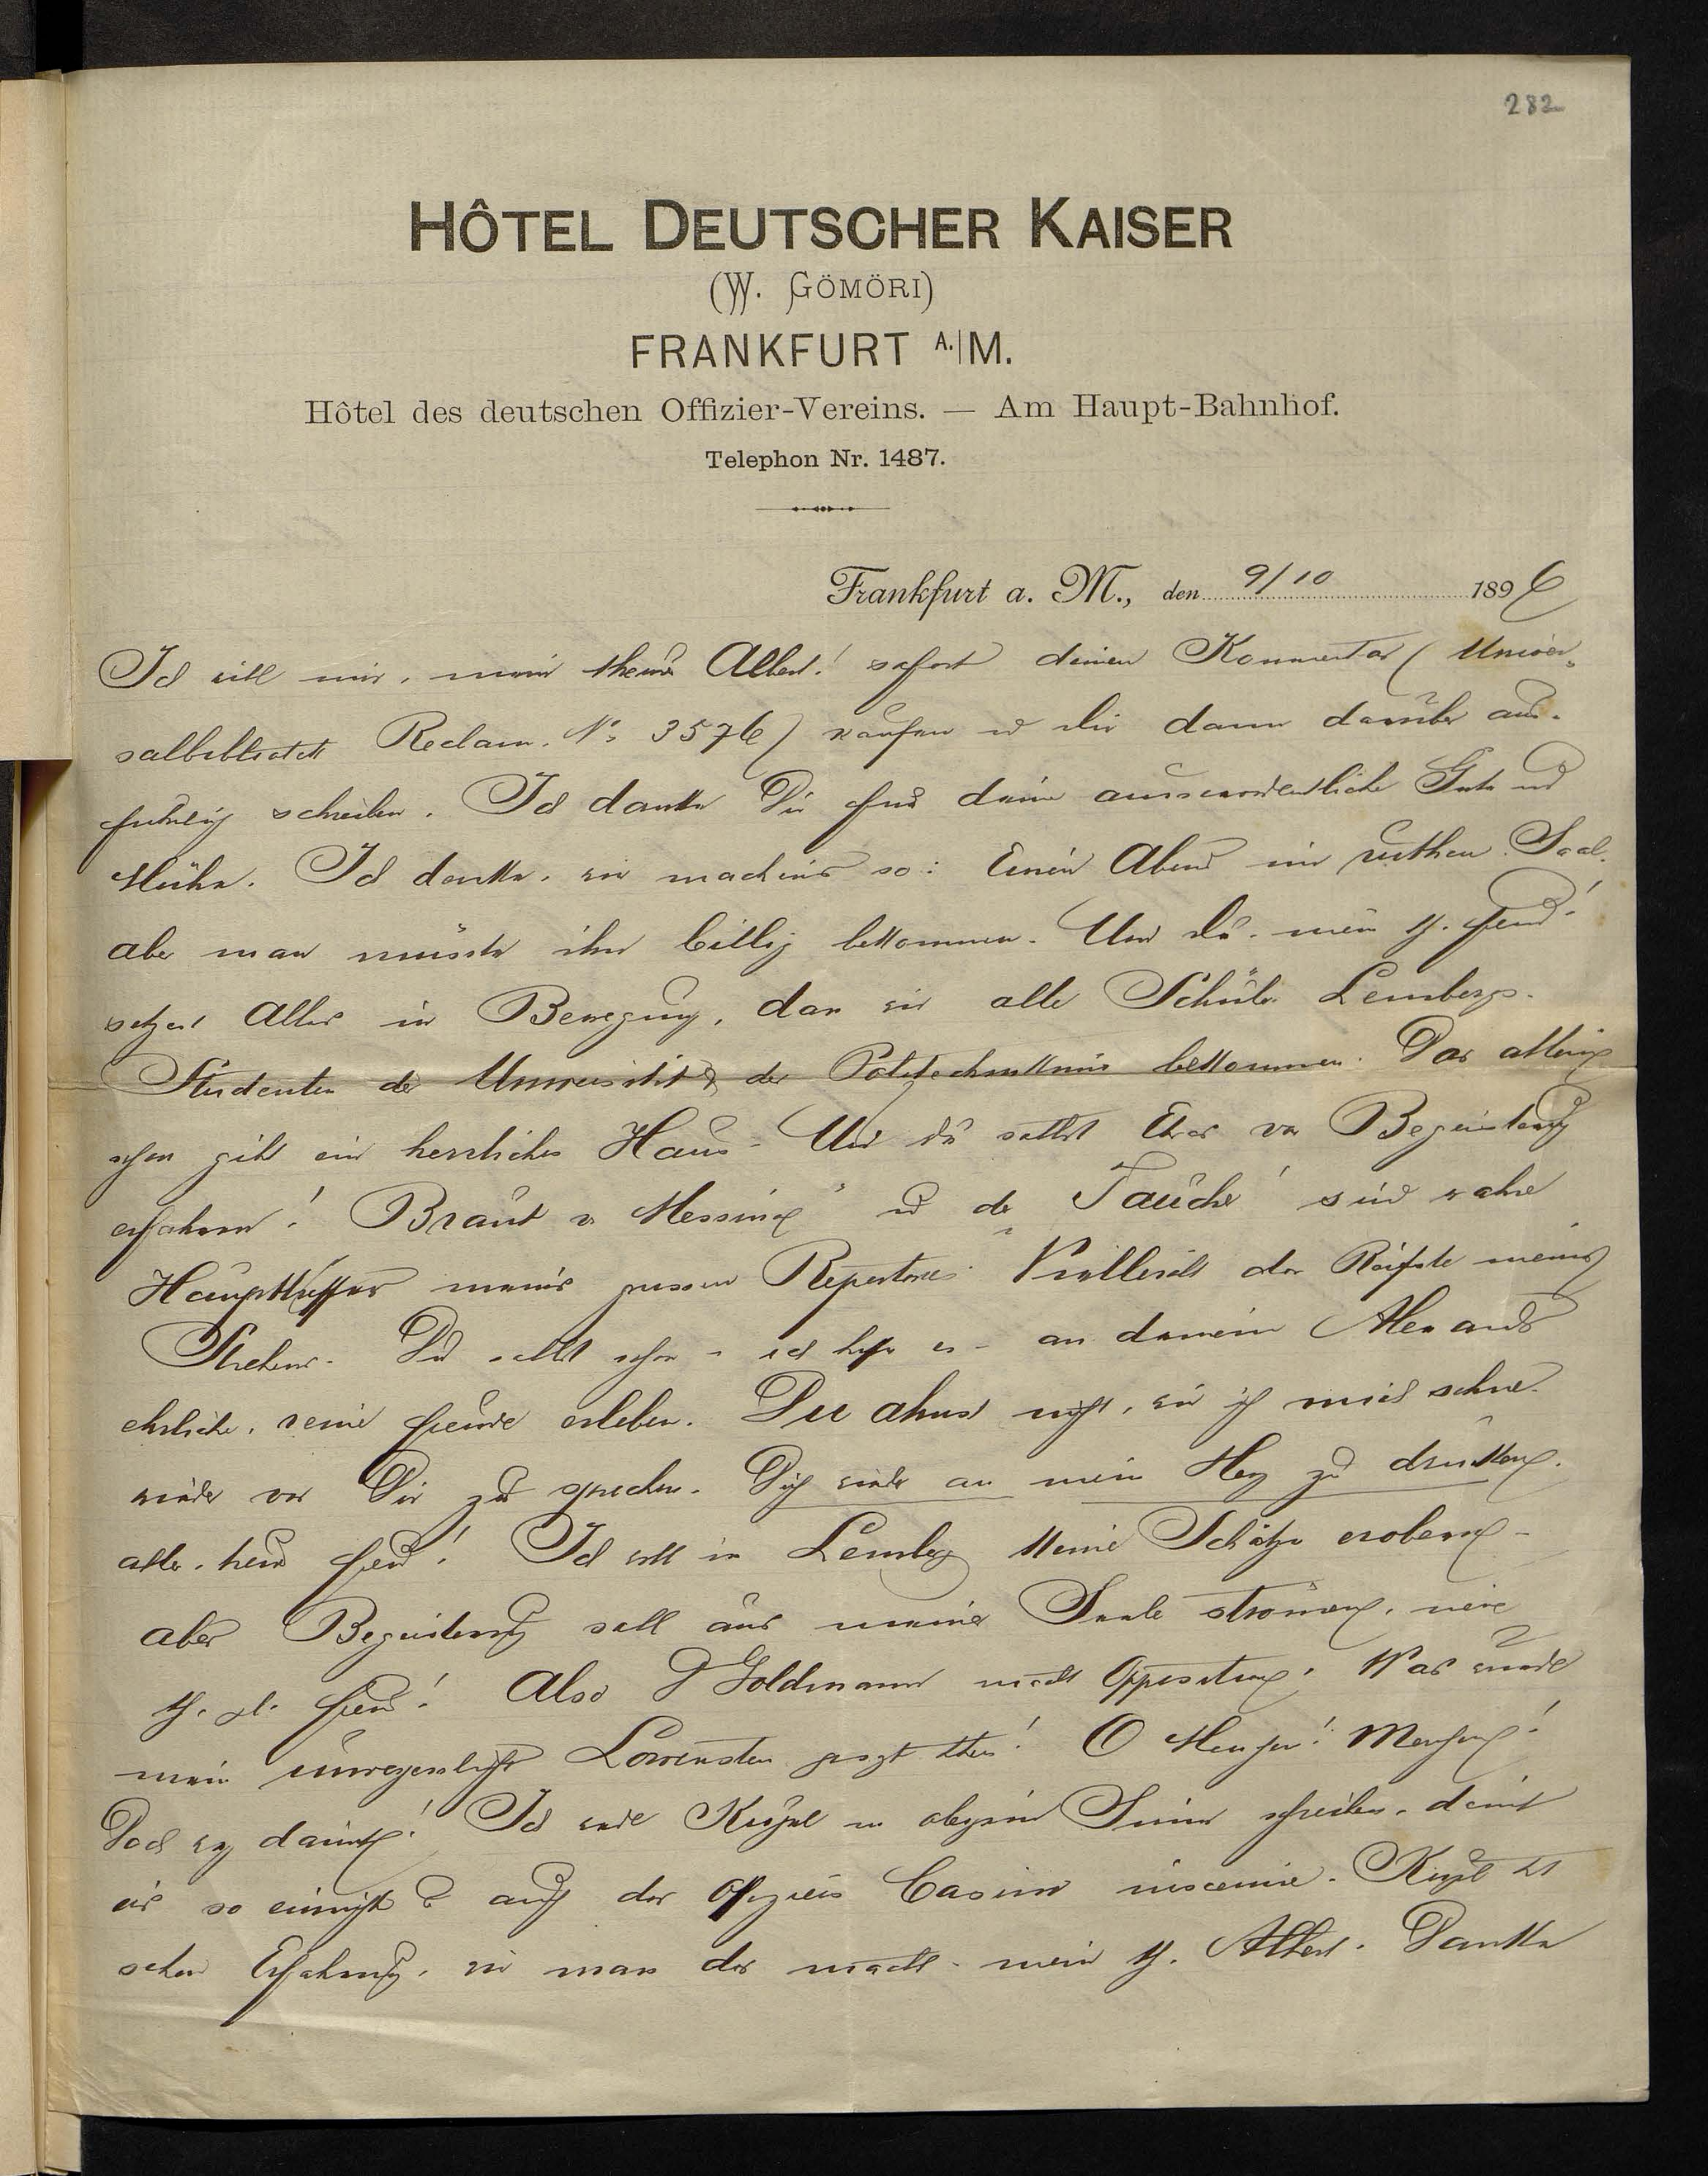 282
HÔTEL DEUTSCHER KAISER
(W. GÖMÖRI)
FRANKFURT A./M.
Hôtel des deutschen Offizier-Vereins. — Am Haupt-Bahnhof.
Telephon Nr. 1487.
Frankfurt a. M., den 9/10 1896
Ich will mir, mein theurer Albert! sofort deinen Kommentar (Univer-
salbibliothek Reclam. No 3576) kaufen u dir dann darüber aus-
führlich schreiben. Ich danke Dir für deine ausserordentliche Güte und
Mühe. Ich denke, wir machens so: Einen Abend im ruthen. Saal.
aber man müsste ihn billig bekommen. Und du. mein th. Freund!
setzest Alles in Bewegung, dass wir alle Schüler Lembergs.
Studenten der Universität & der Politechnik bekommen. Das allein
schon gibt ein herrliches Haus. Und du sollst Etwas von Begeisterung
erfahren! Braut v Messina" u der „Taucher" sind wahre
meines grossen Repertoires. Vielleicht das Reifste meines
Strebens. Du sollst schon - ich hoffe es - an deinem Alexander
ehrliche, reine Freude erleben. Du ahnst nicht, wie ich mich sehne
wieder vor Dir zu sprechen. Dich wieder an mein Herz zu drücken.
alter, Freund! Ich will in Lemberg keine Schätze erobern -
aber Begeisterung soll aus meiner Seele strömen, mein
th. Freund! Also Goldmann macht Opposition. Was würde
mein unvergesslicher Löwenstein gesagt haben! O Menschen! Menschen!
Doch weg damit! Ich werde in obigem Sinne schreiben, damit
er so auch das Offiziers Casino inscenire. hat
schon Erfahrung, wie man das macht. mein th. Albert. Danke